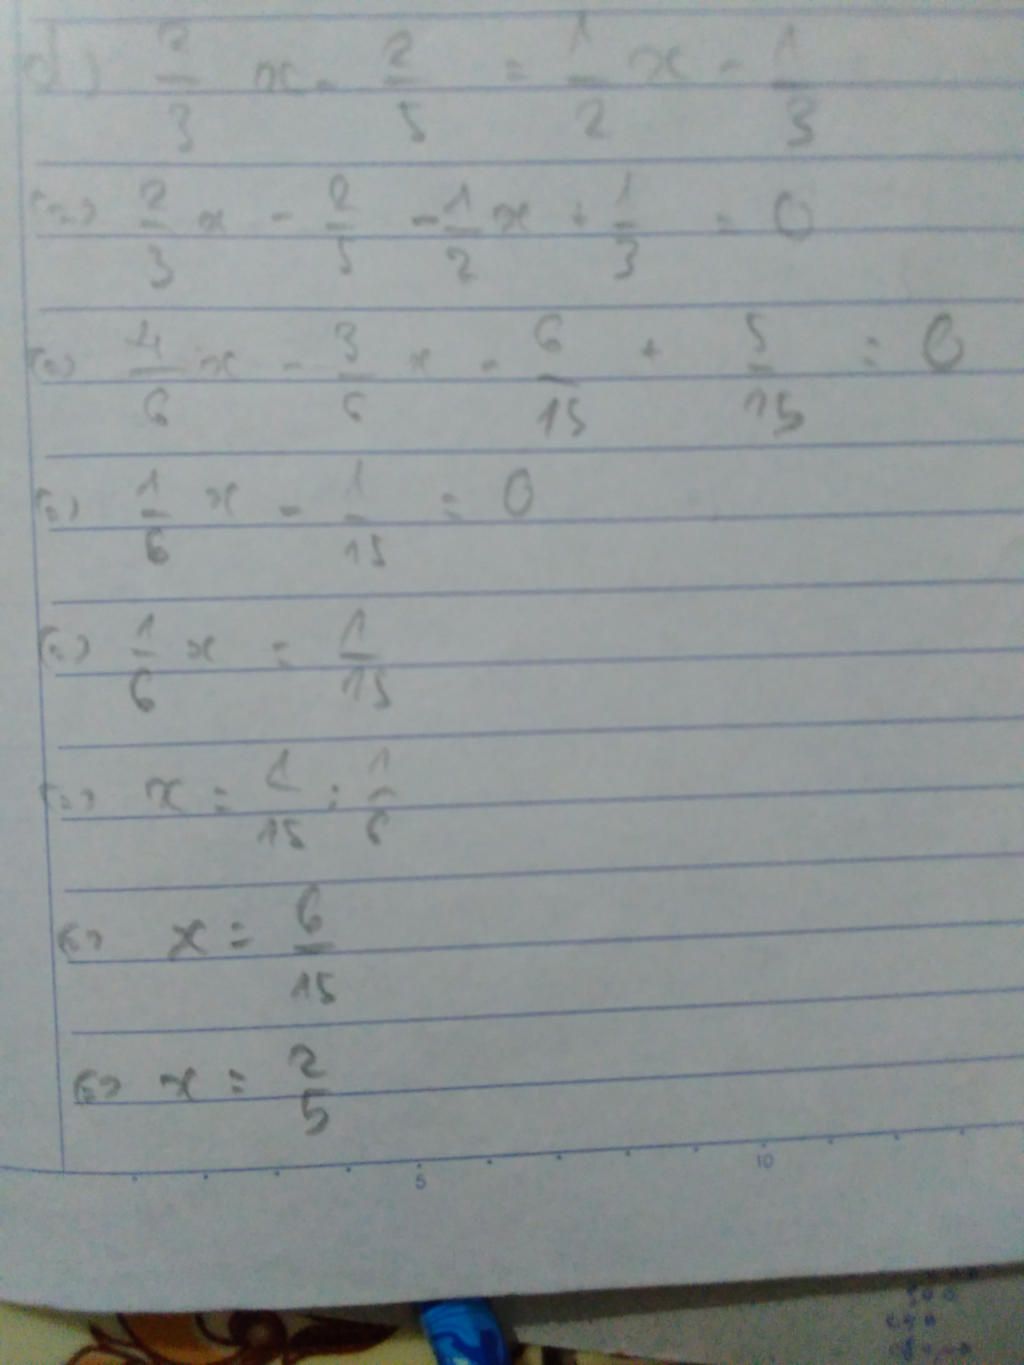 d) 2/3 x - 2/5 = 1/2 x - 1/3
(=) 2/3 x - 2/5 - 1/2 x + 1/3 = 0
(=) 4/6 x - 3/6 x - 6/15 + 5/15 = 0
(=) 1/6 x - 1/15 = 0
(=) 1/6 x = 1/15
(=) x = 1/15 : 1/6
(=) x = 6/15
(=) x = 2/5
5 10